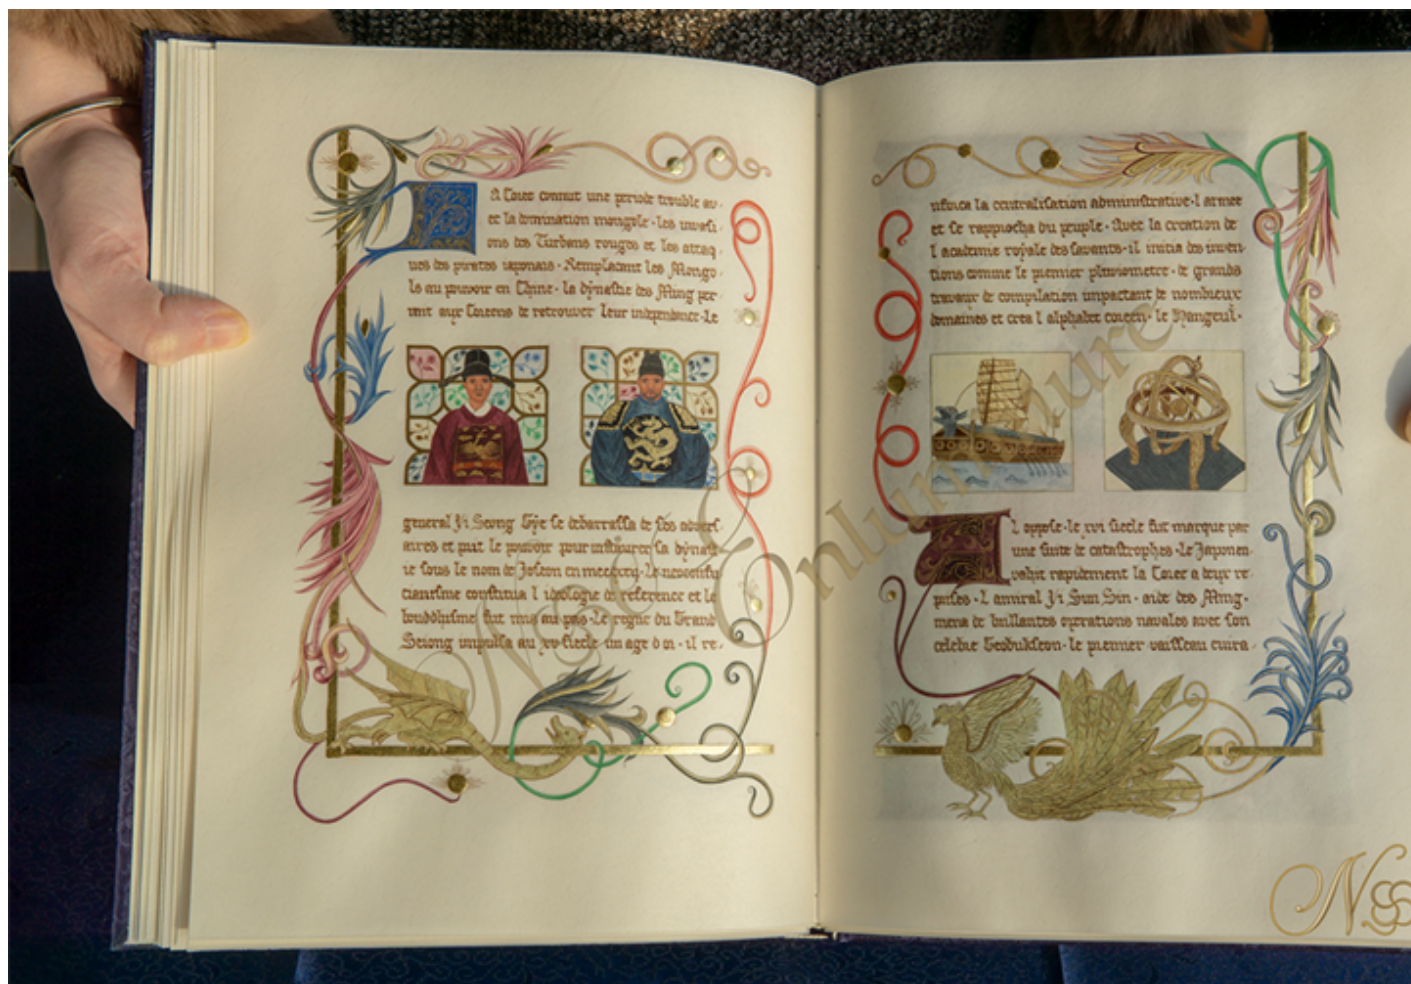 LA Coree connut une periode trouble av-
ec la domination mongole · les invasi-
ons des Turbans rouges et les attaq-
ues des pirates japonais · Remplacant les Mongo-
ls au pouvoir en Chine · la dynastie des Ming per-
mit aux Coreens de retrouver leur independance · Le
general Yi Seong Gye se debarrassa de ses advers-
aires et prit le pouvoir pour instaurer sa dynast-
ie sous le nom de Joseon en mcccxcij · Le neoconfu
cianisme constitua l ideologie de reference et le
bouddhisme fut mis au pas · Le regne du Grand
Sejong impulsa au xv siecle un age d or · il re-
nforca la centralisation administrative · l armee
et se rapprocha du peuple · Avec la creation de
l academie royale des savants · il initia des inven-
tions comme le premier pluviometre · de grands
travaux de compilation impactant de nombreux
domaines et crea l alphabet coreen · le Hangeul ·
A L oppose · le xvi siecle fut marque par
une suite de catastrophes · Le Japon en-
vahit rapidement la Coree a deux re-
prises · L amiral Yi Sun Sin · aide des Ming ·
mena de brillantes operations navales avec son
celebre Geobukseon · le premier vaisseau cuira-
Enluminure